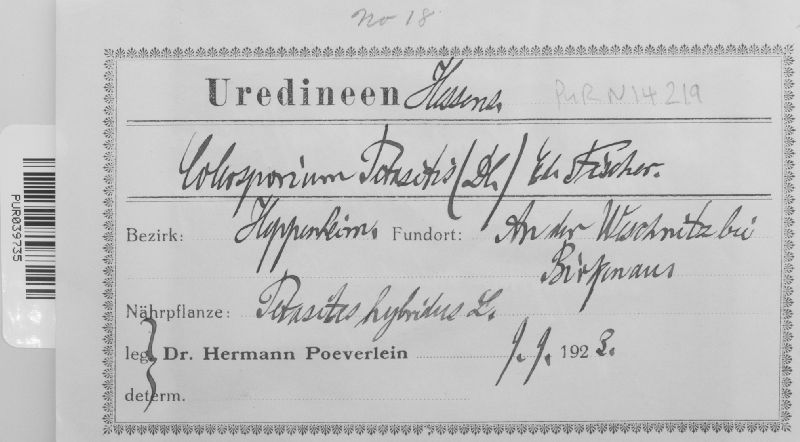 No 18
Uredineen Hessens.
PUR N14219
Coleosporium Petasitis (DC.) Ed. Fischer.
Bezirk: Heppenheim. Fundort: An der Weschnitz bei
Birkenau.
Nährpflanze: Petasites hybridus L.
leg. Dr. Hermann Poeverlein 9. 9. 192
determ.
PUR039735